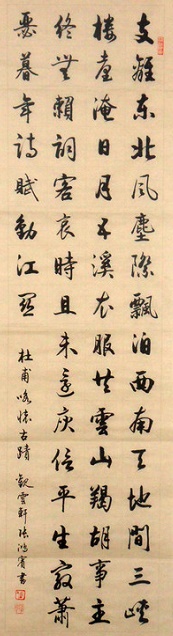 支離東北風塵際飄泊西南天地間三峽
樓臺淹日月五溪衣服共雲山羯胡事主
終無賴詞客哀時且未還庾信平生最蕭
瑟暮年詩賦動江關
杜甫咏懷古蹟 觀雲軒張鴻賓書